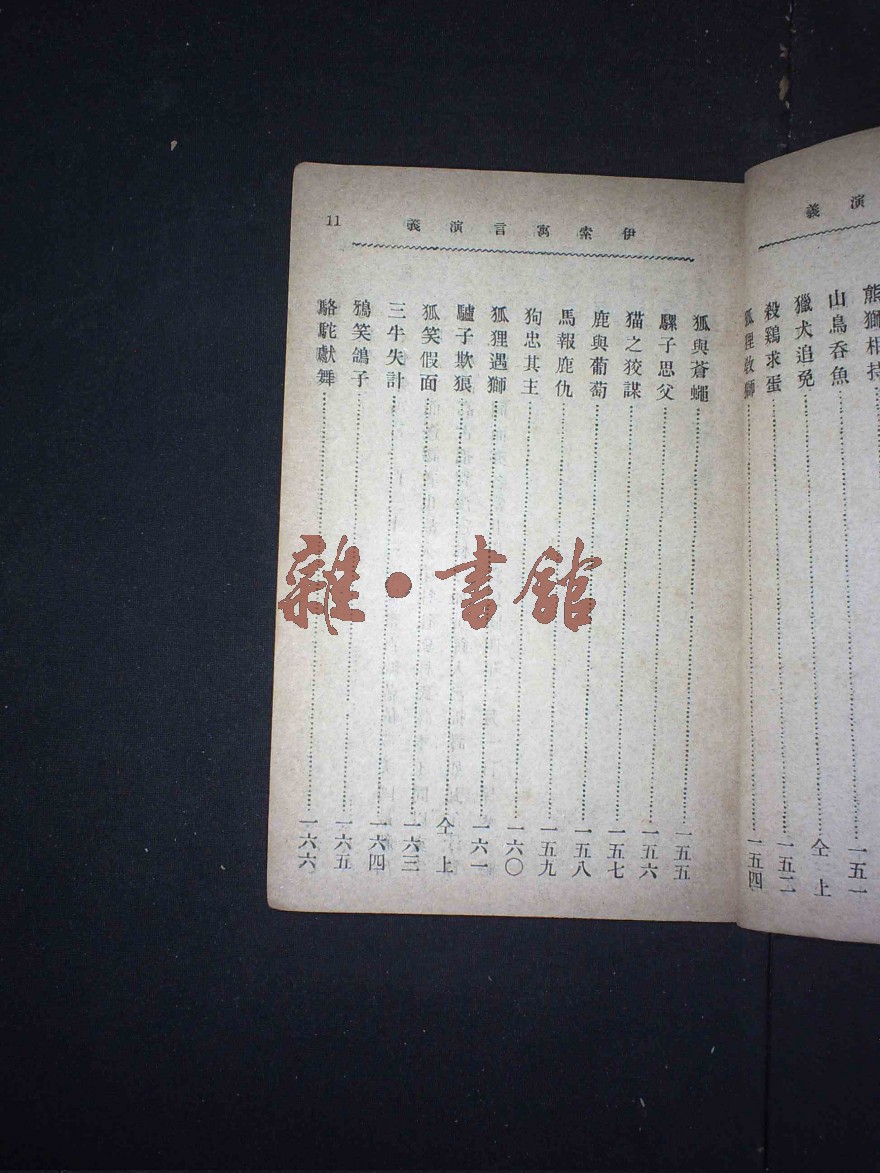 演義
熊獅相持
山鳥吞魚 一五一
獵犬追兔 仝上
殺鷄求蛋 一五二
狐狸救獅 一五四
伊索寓言演義
11
狐與蒼蠅 一五五
騾子思父 一五六
猫之狡謀 一五七
鹿與葡萄 一五八
馬報鹿仇 一五九
狗忠其主 一六〇
狐狸遇獅 一六一
驢子欺狼 仝上
狐笑假面 一六三
三牛失計 一六四
鴉笑鴿子 一六五
駱駝獻舞 一六六
雜·書館